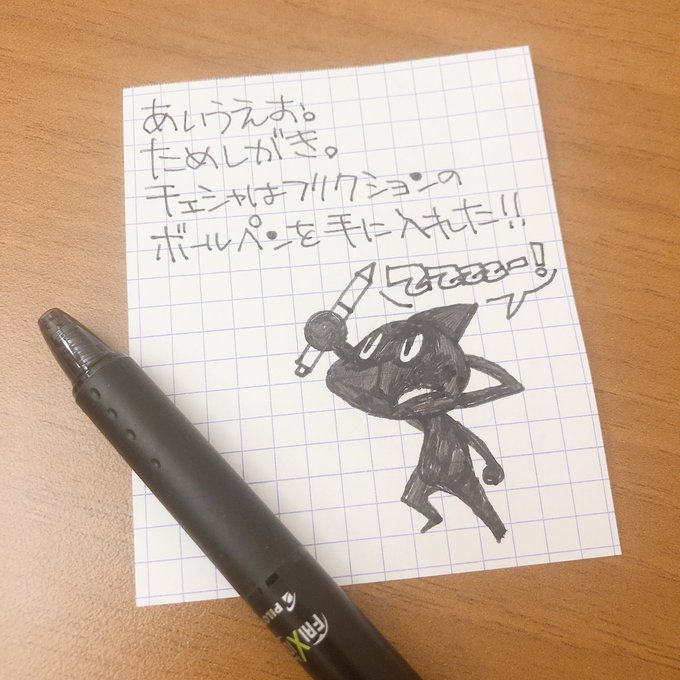 あいうえお。
ためしがき。
チェシャはフリクションの
ボールペンを手に入れた!!
てってれー!
FRIX
PILO